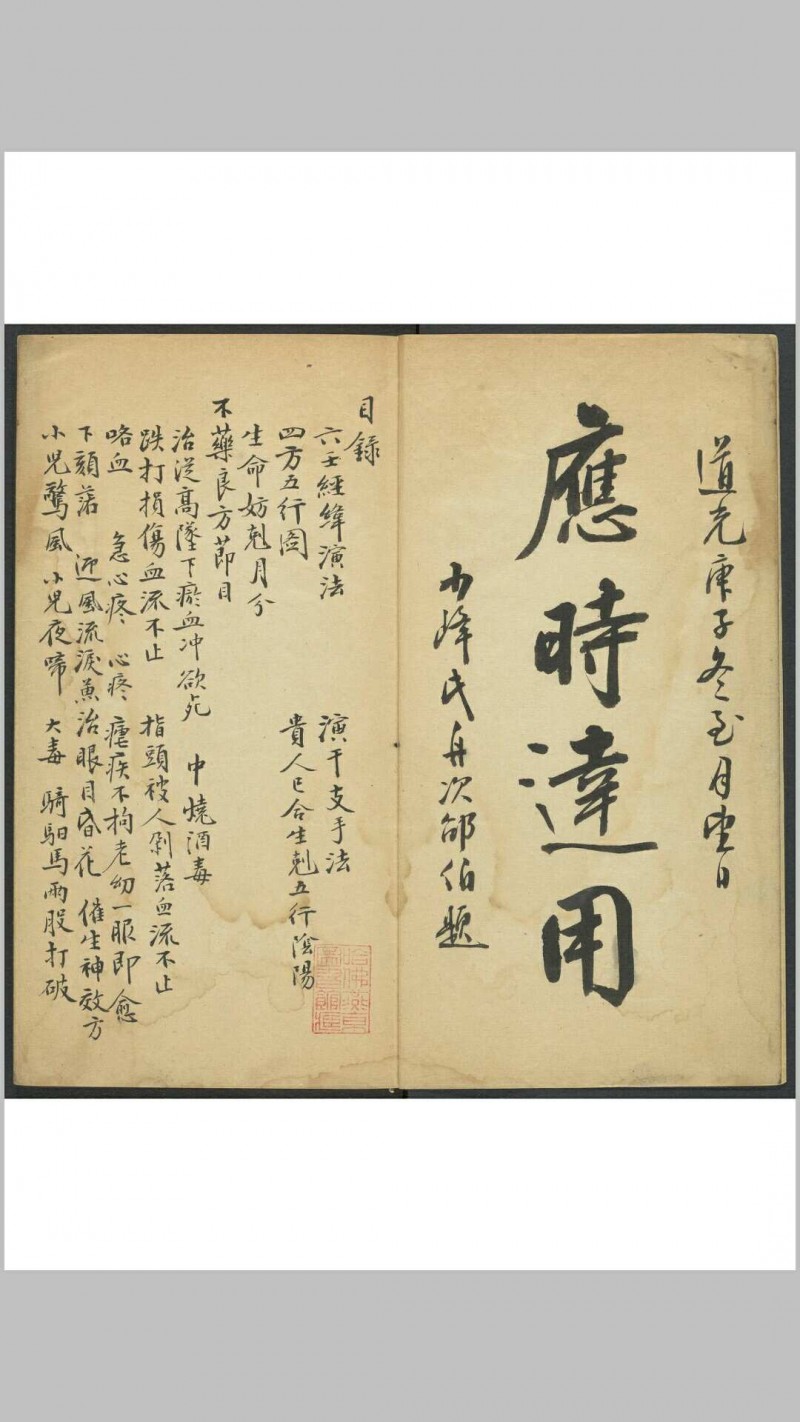 道光庚子冬至月望日
應時達用
少峰氏舟次郤伯題
目錄
六壬經緯演法 演干支手法
四方五行圖 貴人已合生剋五行陰陽
生命妨剋月分
不藥良方節目
治從高墜下瘀血冲欲死 中燒酒毒
跌打損傷血流不止 指頭被人剁落血流不止
咯血 急心疼 心疼 瘧疾不拘老幼一服即愈
下頦落 迎風流淚兼治眼目昏花 催生神效方
小児驚風 小児夜啼 大毒 騎馿馬兩股打破
哈佛燕京圖書館藏